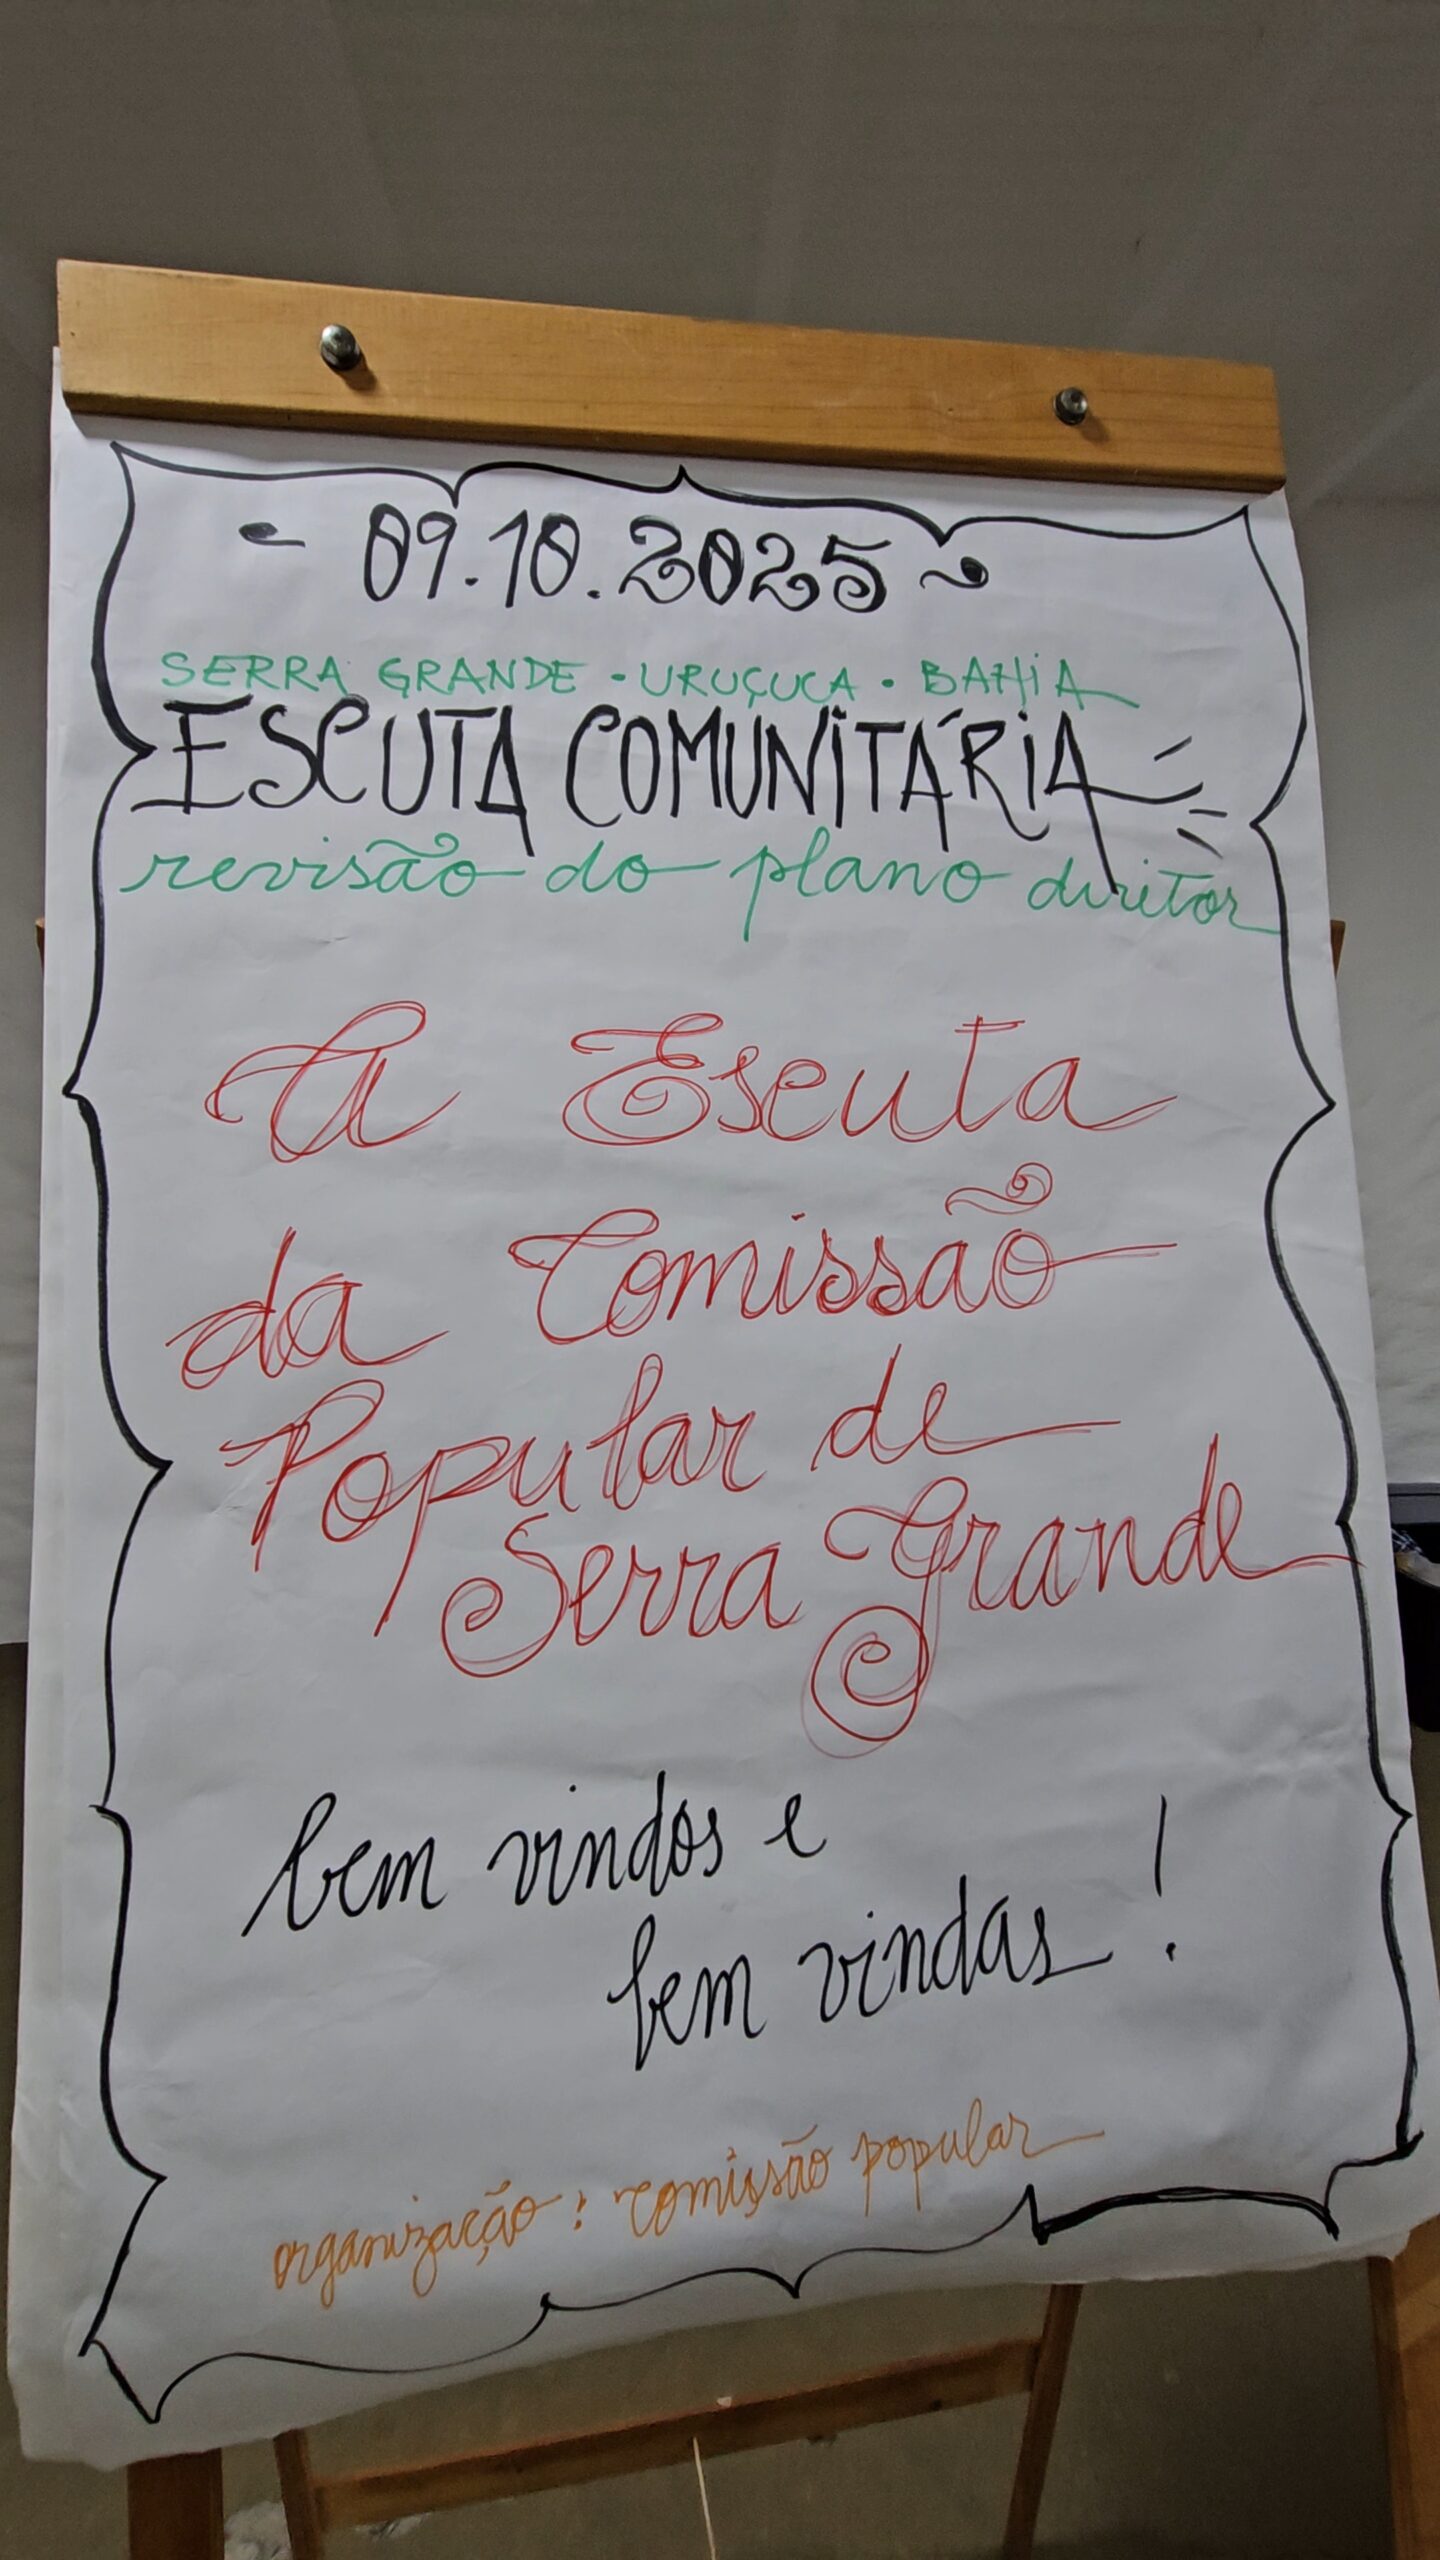 - 09.10.2025 ~
SERRA GRANDE · URUÇUCA · BAHIA
ESCUTA COMUNITÁRIA
revisão do plano diretor
A Escuta
da Comissão
Popular de
Serra Grande
bem vindos e
bem vindas!
organização: comissão popular